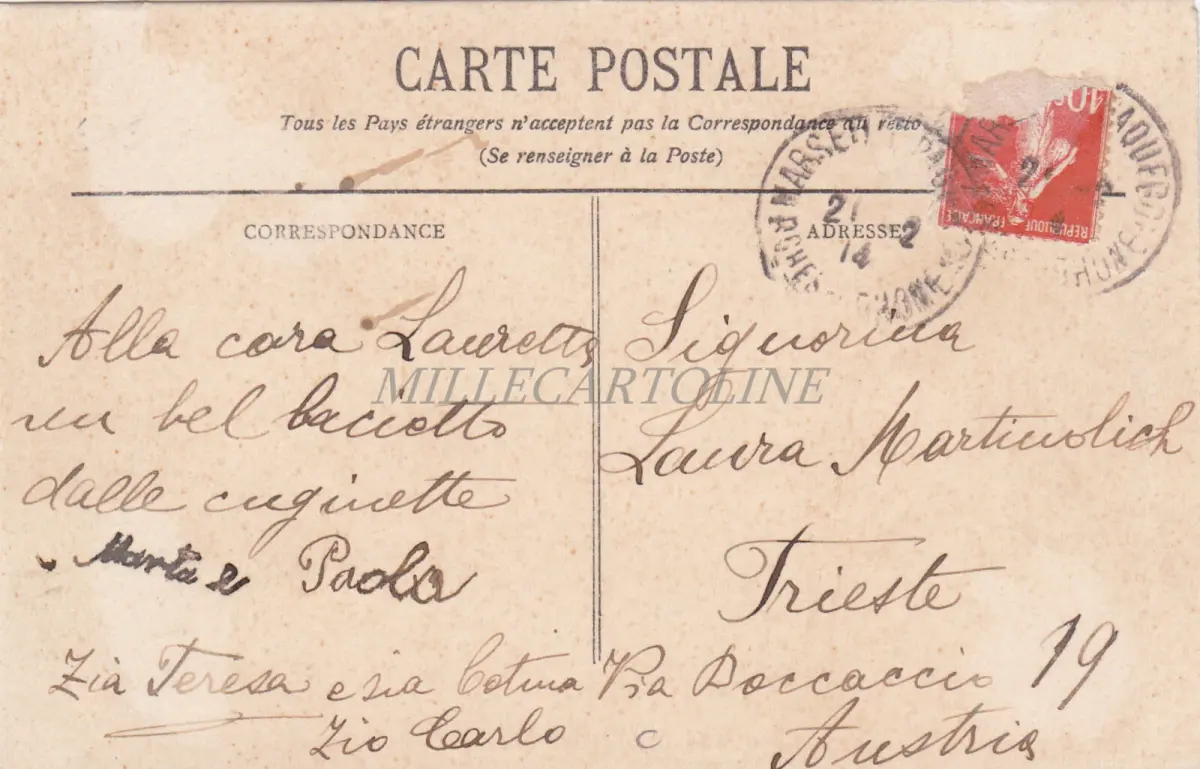 CARTE POSTALE
Tous les Pays étrangers n'acceptent pas la Correspondance au recto
(Se renseigner à la Poste)
CORRESPONDANCE
Alla cara Lauretta
un bel baciotto
dalle cuginette
Marta e Paola
Zia Teresa e zia
Zio Carlo
ADRESSE
Signorina
Laura Martinolich
Trieste
Via Boccaccio 19
Austria
10c
REPUBLIQUE
FRANÇAISE
21 2
14
RHONE
MILLECARTOLINE